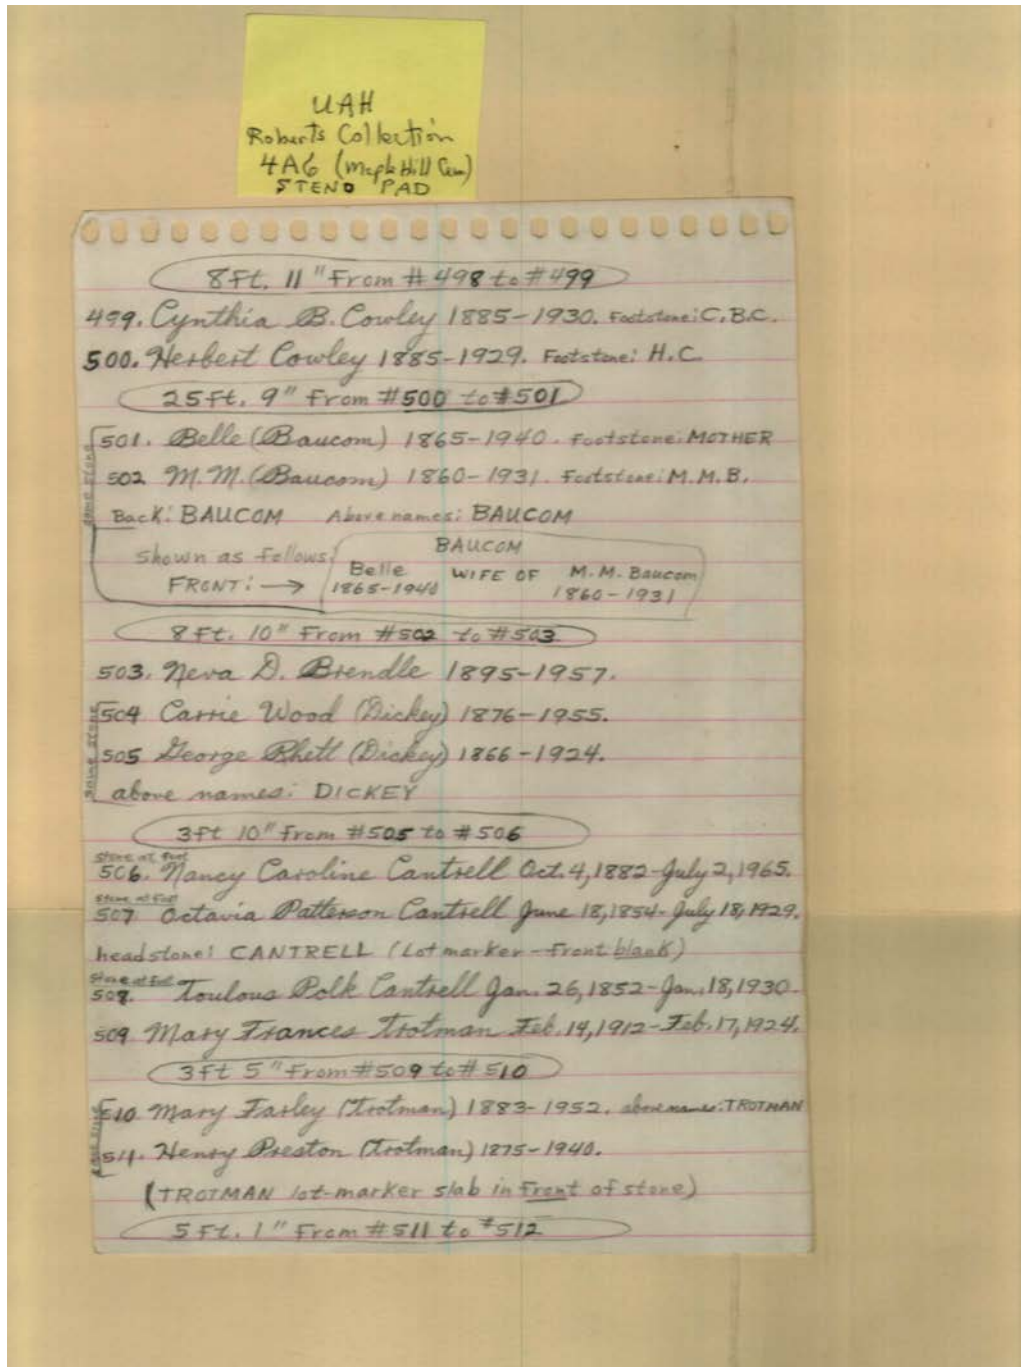 UAH
Roberts Collection
4A6 (Maple Hill Cem)
STENO PAD
8Ft. 11" From #498 to #499
499. Cynthia B. Cowley 1885-1930. Footstone: C.B.C.
500. Herbert Cowley 1885-1929. Footstone: H.C.
25Ft. 9" From #500 to #501
same stone
501. Belle (Baucom) 1865-1940. Footstone: MOTHER
502 M.M. (Baucom) 1860-1931. Footstone: M.M.B.
Back: BAUCOM Above names: BAUCOM
Shown as follows:
FRONT: →
BAUCOM
Belle WIFE OF M.M. Baucom
1865-1940 1860-1931
8Ft. 10" From #502 to #503
503. Neva D. Brendle 1895-1957.
same stone
504 Carrie Wood (Dickey) 1876-1955.
505 George Rhett (Dickey) 1866-1924.
above names: DICKEY
3Ft 10" From #505 to #506
Stone at Foot
506. Nancy Caroline Cantrell Oct. 4, 1882-July 2, 1965.
Stone at Foot
507 Octavia Patterson Cantrell June 18, 1854-July 18, 1929.
headstone: CANTRELL (Lot marker-front blank)
Stone at Foot
508. Toulous Polk Cantrell Jan. 26, 1852-Jan. 18, 1930.
509. Mary Frances Trotman Feb. 14, 1912-Feb. 17, 1924.
3Ft 5" From #509 to #510
same stone
510 Mary Farley (Trotman) 1883-1952. above names: TROTMAN
511. Henry Preston (Trotman) 1875-1940.
(TROTMAN lot-marker slab in Front of stone)
5Ft. 1" From #511 to #512